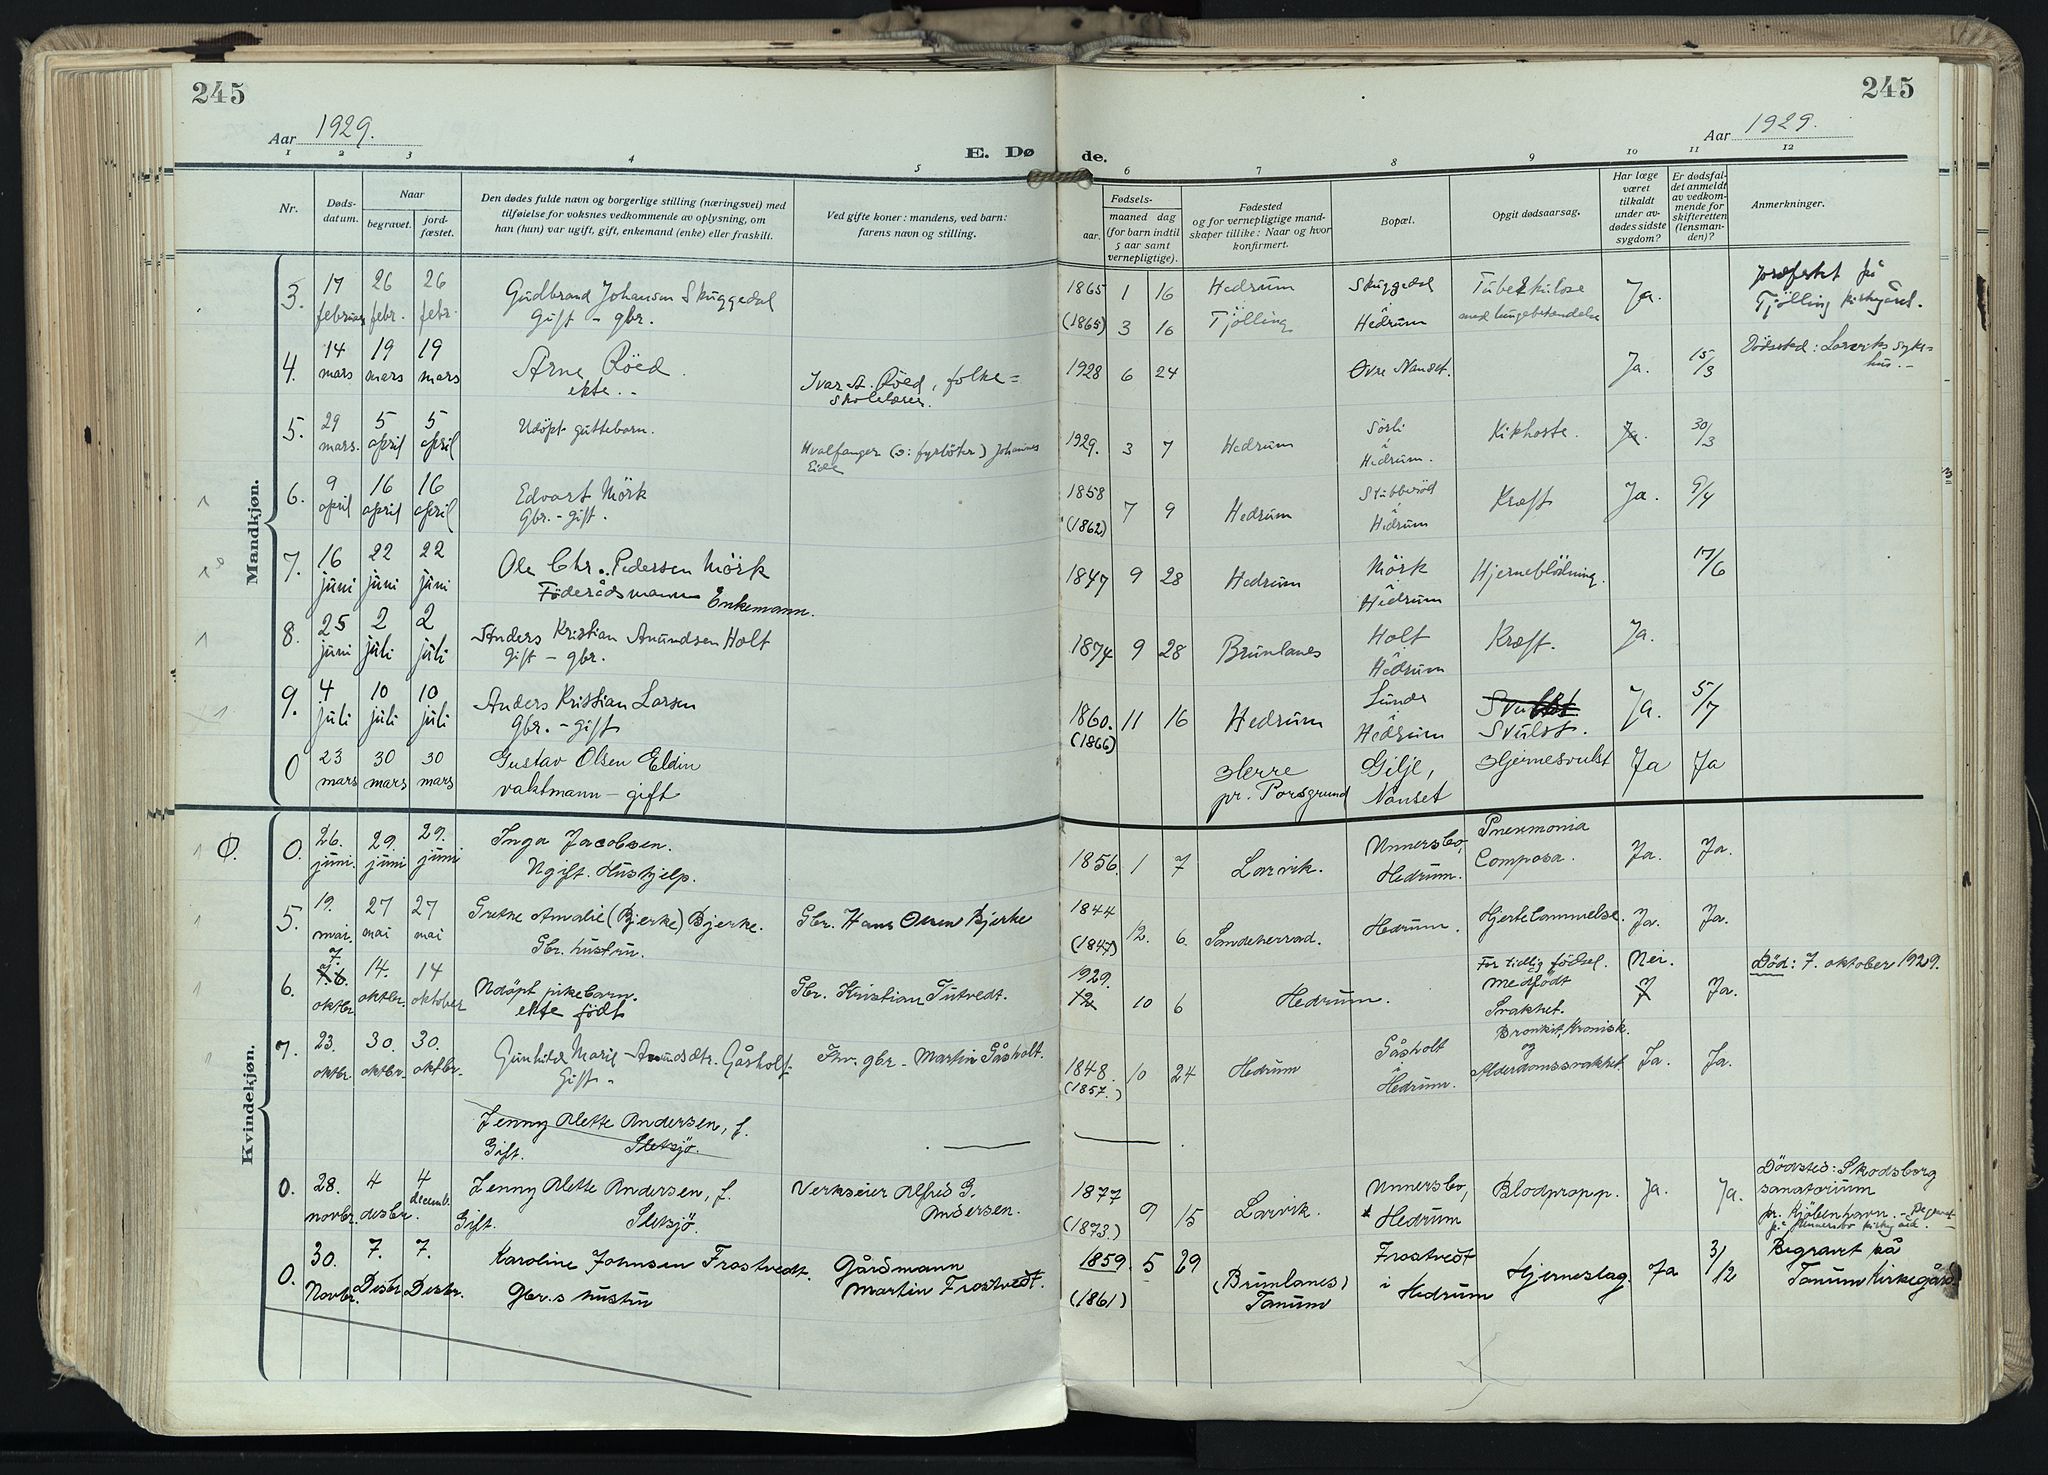 245
245
Aar 1929.
Aar 1929.
E. Dø
de.
1 2 3 4 5 6 7 8 9 10 11 12
Nr.
Døds-
datum.
Naar
begravet.
jord-
fæstet.
Den dødes fulde navn og borgerlige stilling (næringsvei) med
tilføielse for voksnes vedkommende av oplysning, om
han (hun) var ugift, gift, enkemand (enke) eller fraskilt.
Ved gifte koner: mandens, ved barn:
farens navn og stilling.
Fødsels-
aar.
maaned dag
(for barn indtil
5 aar samt
vernepligtige).
Fødested
og for vernepligtige mand-
skaper tillike: Naar og hvor
konfirmert.
Bopæl.
Opgit dødsaarsag.
Har læge
været
tilkaldt
under av-
dødes sidste
sygdom?
Er dødsfal-
det anmeldt
av vedkom-
mende for
skifteretten
(lensman-
den)?
Anmerkninger.
Mandkjøn.
3. 17 februar 26 febr. 26 febr. Gudbrand Johansen Skuggedal
Gift - gbr.
1865 1 16 Hedrum Skuggedal i Hedrum Tuberkulose
med lungebetendelse Ja.
(1865) 3 16 Tjölling
jordfestet på
Tjölling kirkegård.
4. 14 mars 19 mars 19 mars Arne Röed.
ekte. -
Ivar A. Röed, folke=
skolelærer.
1928 6 24 Övre Nanset. Ja. 15/3
Dödsted: Larviks syke-
hus. -
5. 29 mars. 5 april 5 april Udöpt guttebarn.
Hvalfanger (o: fyrböter) Johannes
Eide
1929. 3 7 Hedrum Sörli i Hedrum. Kikhoste. Ja. 30/3
6. 9 april 16 april 16 april Edvart Mörk
Gbr. - gift.
1858 (1862) 7 9 Hedrum Stubberöd i Hedrum Kræft Ja. 9/4
7. 16 juni 22 juni 22 juni Ole Chr. Pedersen Mörk
Föderådsmann Enkemann.
1847 9 28 Hedrum Mörk i Hedrum Hjerneblödning. 17/6
8. 25 juni 2 juli 2 juli Anders Kristian Amundsen Holt
Gift - gbr.
1874 9 28 Brunlanes Holt i Hedrum Kræft. Ja.
9. 4 juli 10 juli 10 juli Anders Kristian Larsen
Gbr. - gift
1860. (1866) 11 16 Hedrum Lunde i Hedrum Svulst. Ja. 5/7
0 23 mars 30 mars 30 mars Gustav Olsen Eldin
vaktmann - gift
Herre
pr. Porsgrund Gilje,
Nanset Hjernesvulst Ja Ja
Kvindekjøn.
0. 26. juni. 29. juni 29. juni Inga Jacobsen.
Ugift. Hushjelp.
1856. 1 7 Larvik. Unnersbo,
Hedrum. Pneumonia
Composa. Ja. Ja.
5. 19. mai. 27 mai 27 mai Grethe Amalie (Bjerke) Bjerke.
Gbr. hustru.
Gbr. Hans Olsen Bjerke
1844 (1847) 12. 6. Sandeherrad. Hedrum. Hjertelammelse. Ja. Ja.
6. 7. oktbr 14. oktbr. 14 oktober Udöpt pikebarn.
ekte födt
Gbr. Kristian Tutvedt.
1929. 10 6 Hedrum. For tidlig födsel.
Medfödt
Svakhet. Nei. Ja.
Död: 7. oktober 1929.
7. 23. oktbr. 30. oktbr. 30. oktbr. Gunhild Marie Amundsdtr. Gåsholt
Gift. -
Fhv. gbr. - Martin Gåsholt.
1848. (1857.) 10 24 Hedrum Gåsholt i Hedrum. Bronkit, Kronisk.
og
Alderdomssvakhet Ja. Ja.
Jenny Alette Andersen, f.
Gift. Sletsjö.
0. 28. novbr. 4 desbr. 4 decemb. Jenny Alette Andersen, f.
Gift. Sletsjö.
Verkseier Alfred G.
Andersen.
1877 (1873.) 9 15 Larvik. Unnersbo,
Hedrum Blodpropp. Ja. Ja.
Dödsted: Skodsborg
sanatorium
pr. Kjöbenhavn. -
0. 30. Novbr. 7. Desbr 7. Desbr. Karoline Johnsen Frostvedt.
Gbr.s hustru
Gårdmann
Martin Frostvedt.
1859. (1861) 5 29 (Brunlanes)
Tanum Frostvedt
i Hedrum Hjerneslag. Ja 3/12
Begravet på
Tanum Kirkegård